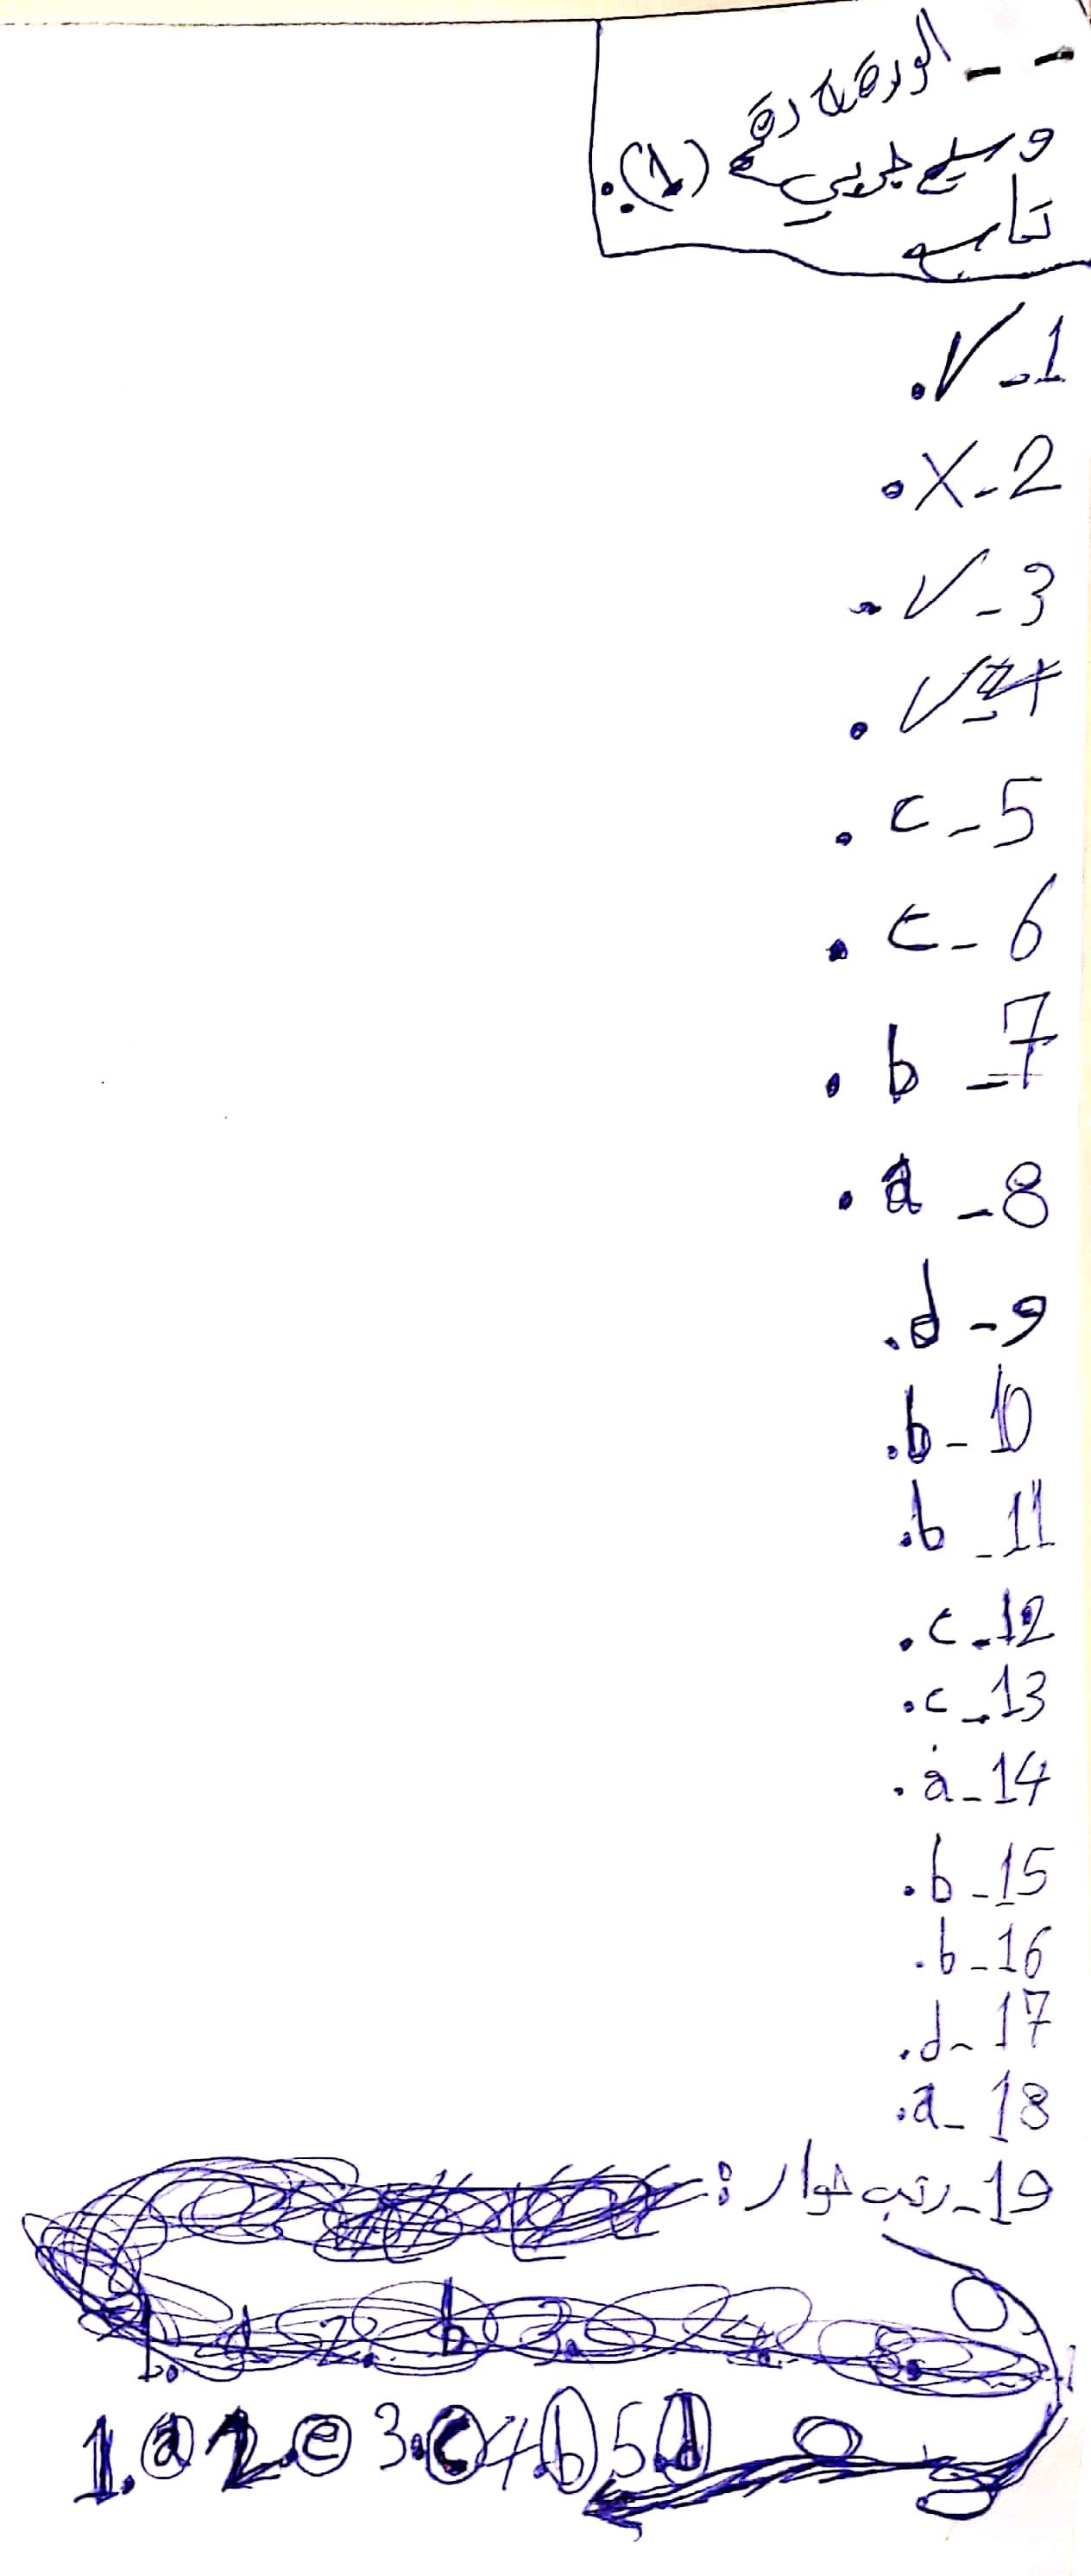 - -
(1).
تابع
1- √.
2- X.
3- √.
4- √.
5- c.
6- c.
7- b.
8- a.
9- d.
10- b.
11- b.
12- c.
13- c.
14- a.
15- b.
16- b.
17- d.
18- a.
19- رتب حوار :
1. a 2. e 3. c 4. b 5. d